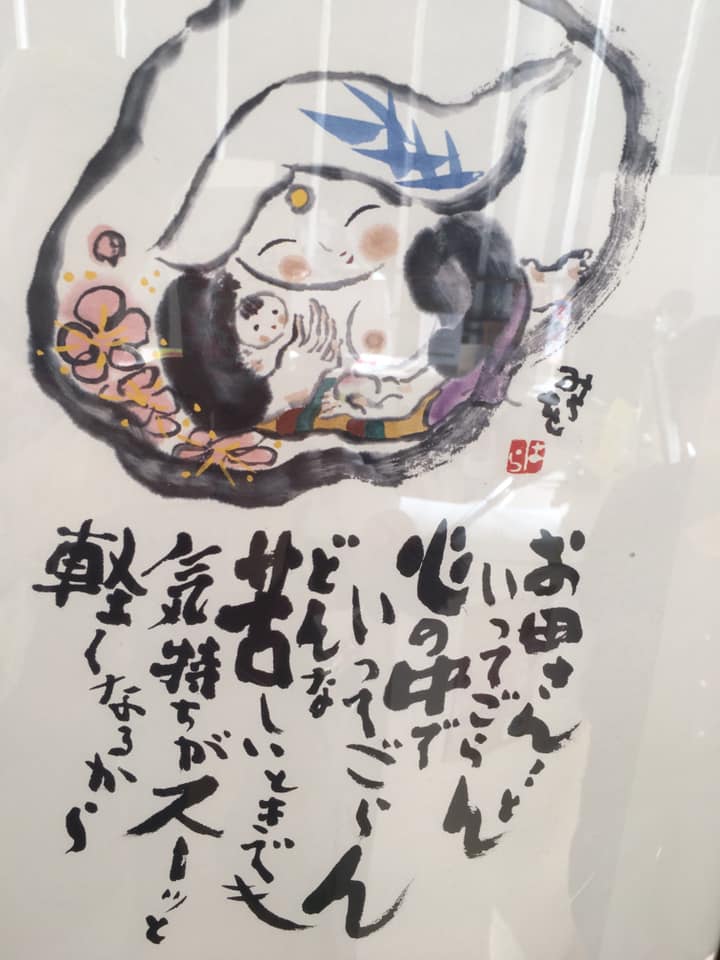 みちを
はら
お母さん!と
いってごらん
心の中で
いってごらん
どんな
苦しいときでも
気持ちがスーッと
軽くなるから